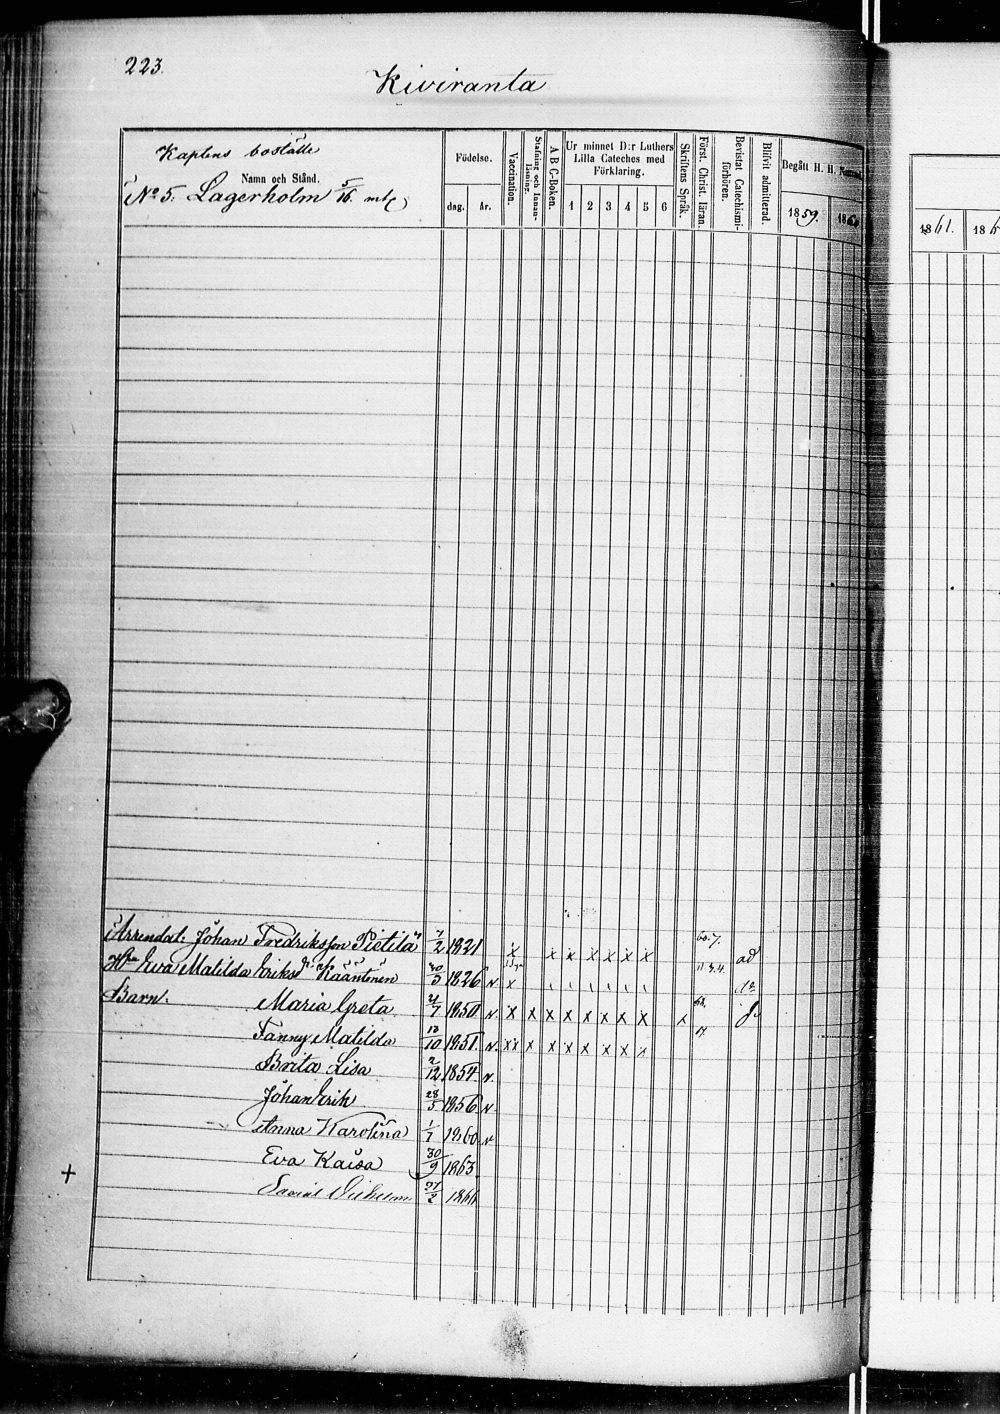 223.
Kiviranta
Kaplens boställe
Namn och Stånd.
No 5. Lagerholm 5/16 mtl
Födelse.
dag. år.
Vaccination.
Stafning och Innan-läsning.
A B C-Boken.
Ur minnet D:r Luthers Lilla Cateches med Förklaring.
1 2 3 4 5 6
Skriftens Språk.
Först. Christ. läran.
Bevistat Catechismi-förhören.
Blifvit admitterad.
Begått H. H. Nattvard
1859. 1860
1861. 186
Arrendat. Johan Fredriksson Pietilä 7/2 1821 x x x x x x x 60. 7. ad
Hu Eva Matilda Eriksdr Kääntinen 30/5 1826 N x
Barn: Maria Greta 21/7 1850 N. x x x x x x x x x
Fanny Matilda 13/10 1851. N. x x x x x x x x x
Brita Lisa 2/12 1854 N.
Johan Erik 28/5 1856 N
Anna Karolina 1/7 1860 N
+ Eva Kaisa 30/9 1863
27/2 1866